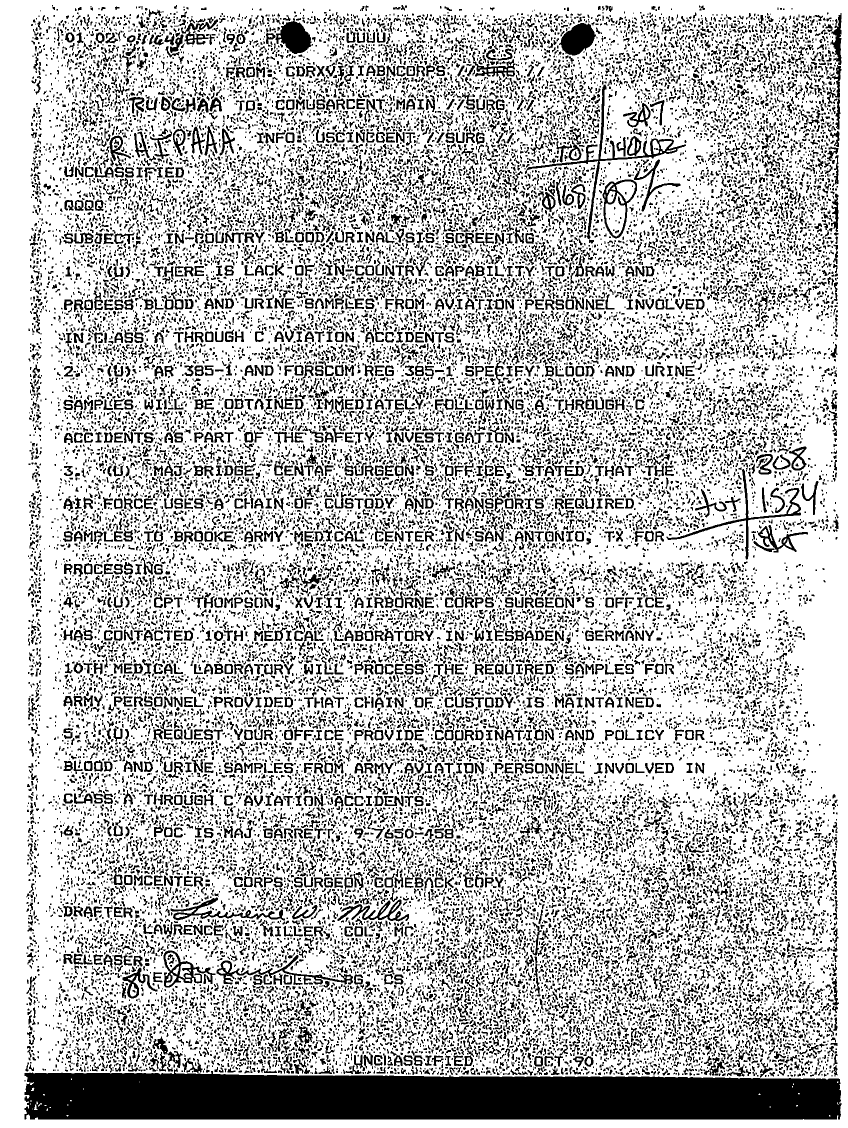 01 02 OCT 90 UUUU
NOV
FROM: CDRXVIIIABNCORPS //SURG //
CS
RUDCHAA TO: COMUSARCENT MAIN //SURG //
RHIPAAA INFO: USCINCCENT //SURG //
347
TOF
UNCLASSIFIED
QQQQ
SUBJECT: IN-COUNTRY BLOOD/URINALYSIS SCREENING
1. (U) THERE IS LACK OF IN-COUNTRY CAPABILITY TO DRAW AND
PROCESS BLOOD AND URINE SAMPLES FROM AVIATION PERSONNEL INVOLVED
IN CLASS A THROUGH C AVIATION ACCIDENTS.
2. (U) AR 385-1 AND FORSCOM REG 385-1 SPECIFY BLOOD AND URINE
SAMPLES WILL BE OBTAINED IMMEDIATELY FOLLOWING A THROUGH C
ACCIDENTS AS PART OF THE SAFETY INVESTIGATION.
3. (U) MAJ BRIDGE, CENTAF SURGEON'S OFFICE, STATED THAT THE
AIR FORCE USES A CHAIN OF CUSTODY AND TRANSPORTS REQUIRED
SAMPLES TO BROOKE ARMY MEDICAL CENTER IN SAN ANTONIO, TX FOR
PROCESSING.
308
1534
4. (U) CPT THOMPSON, XVIII AIRBORNE CORPS SURGEON'S OFFICE,
HAS CONTACTED 10TH MEDICAL LABORATORY IN WIESBADEN, GERMANY.
10TH MEDICAL LABORATORY WILL PROCESS THE REQUIRED SAMPLES FOR
ARMY PERSONNEL PROVIDED THAT CHAIN OF CUSTODY IS MAINTAINED.
5. (U) REQUEST YOUR OFFICE PROVIDE COORDINATION AND POLICY FOR
BLOOD AND URINE SAMPLES FROM ARMY AVIATION PERSONNEL INVOLVED IN
CLASS A THROUGH C AVIATION ACCIDENTS.
6. (U) POC IS MAJ GARRETT, 9-7650-458.
COMCENTER: CORPS SURGEON COMEBACK COPY
DRAFTER: Lawrence W. Miller
LAWRENCE W. MILLER, COL, MC
RELEASER:
EDISON E. SCHOLES, BG, CS
UNCLASSIFIED OCT 90